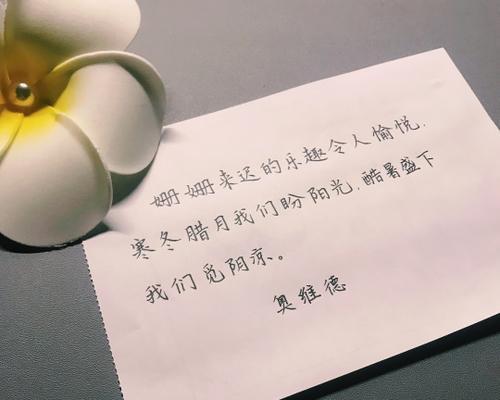 姗姗来迟的乐趣令人愉悦.
寒冬腊月我们盼阳光.酷暑盛下
我们觅阴凉。
奥维德